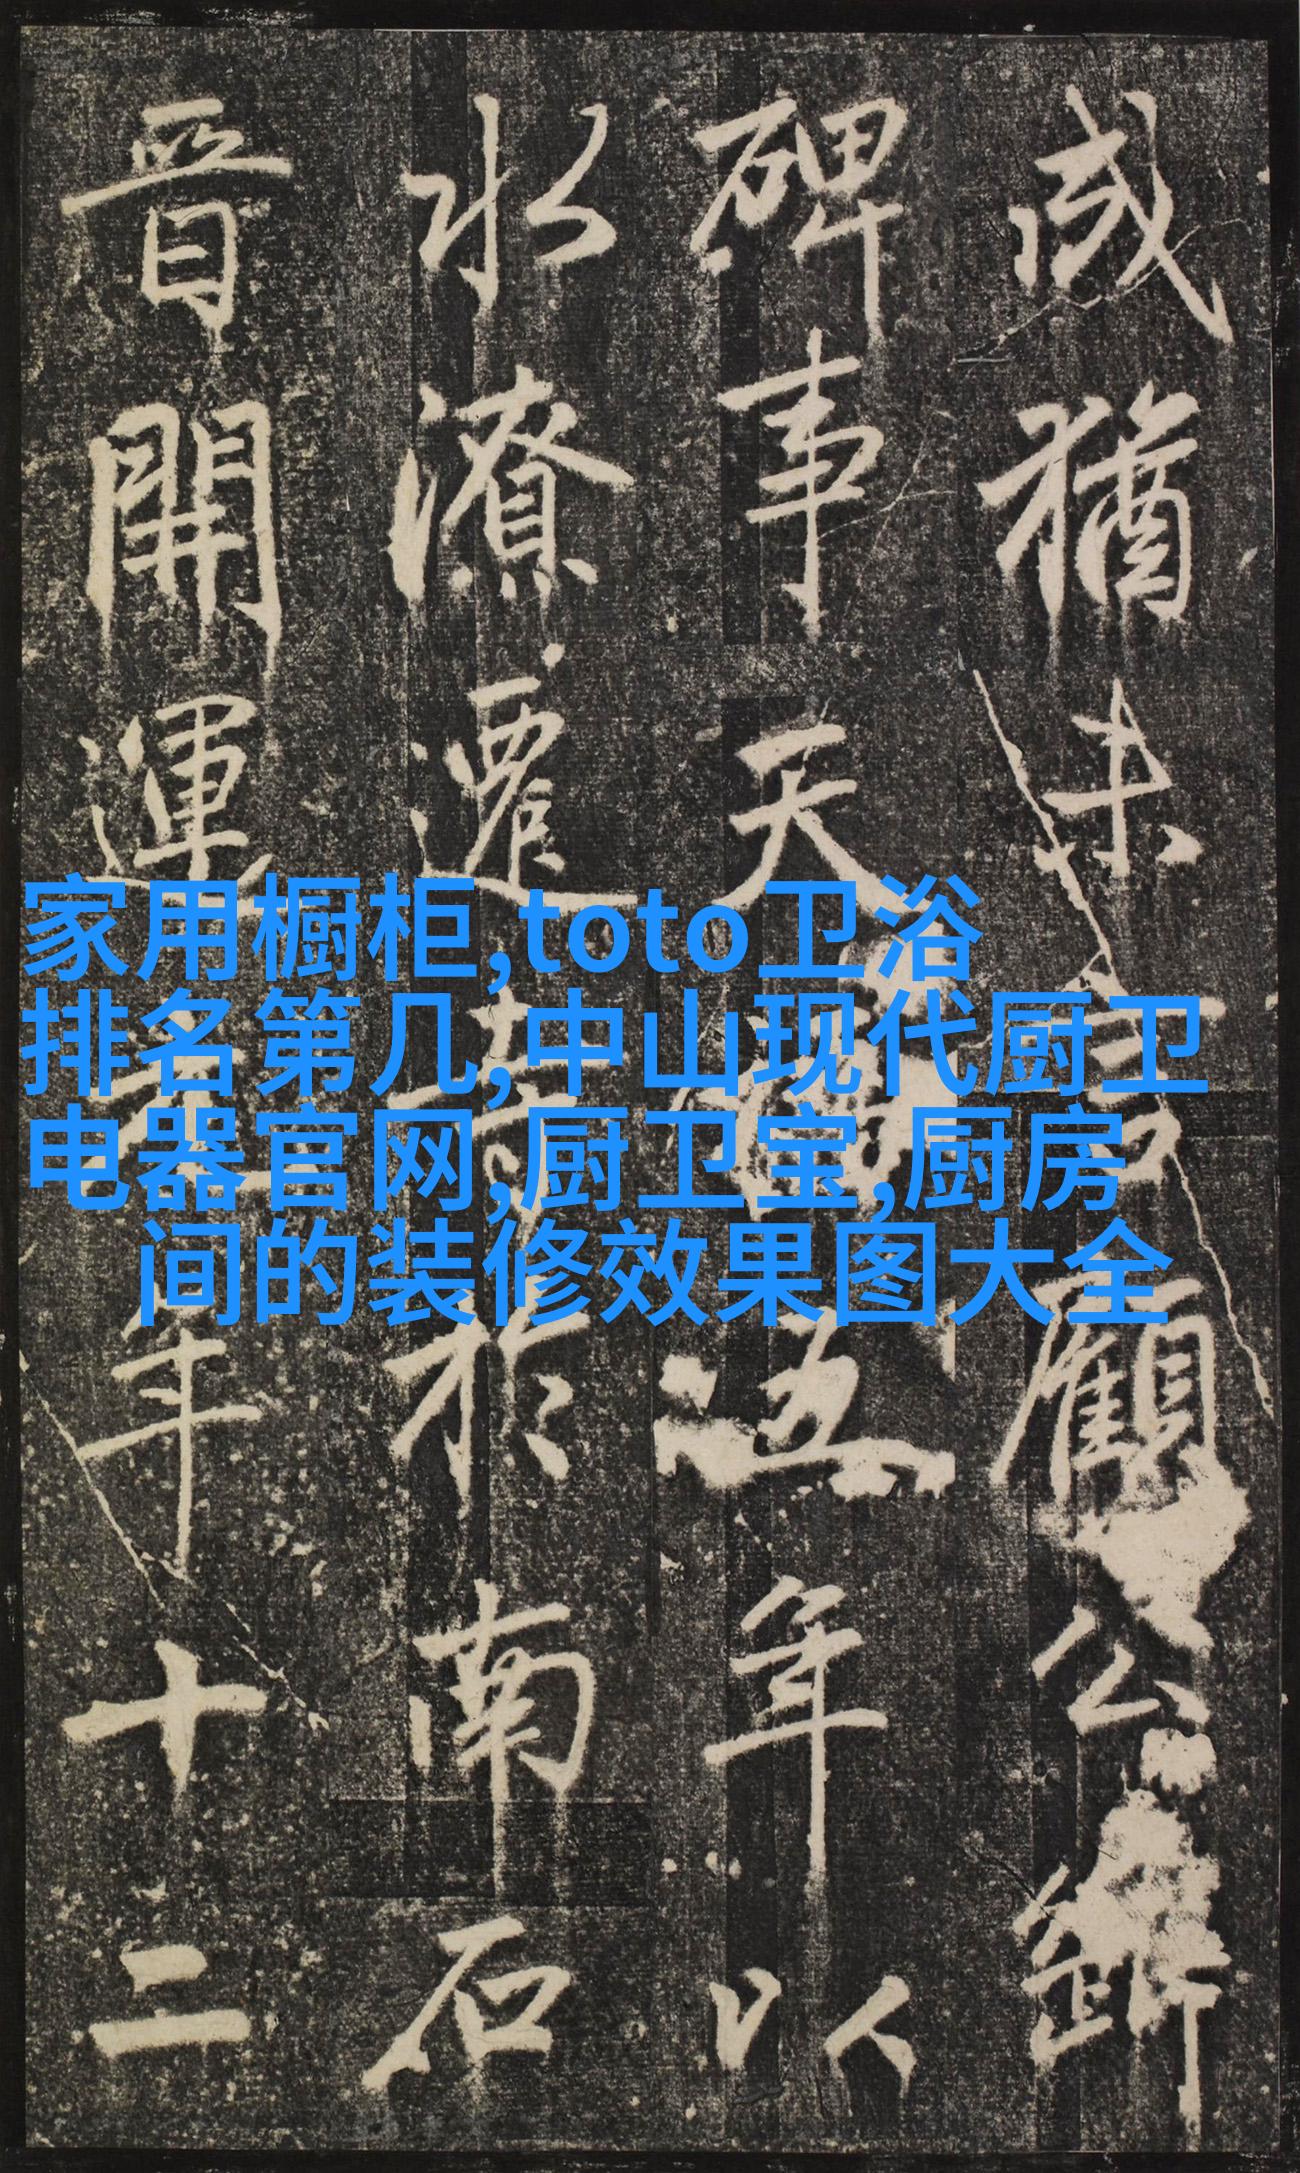 咸猶未雲顧公鎛
碑事天福五年以
水潦遷寺於南石
晉開運二年十二
家用橱柜,toto卫浴
排名第几,中山现代厨卫
电器官网,厨卫宝,厨房
间的装修效果图大全